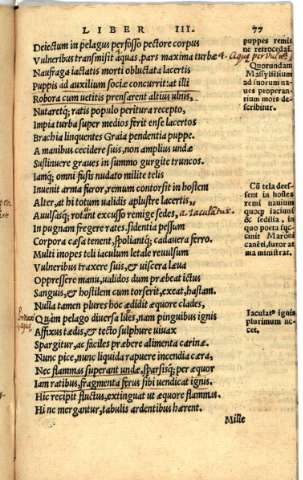 LIBER III. 77
Deiectum in pelagus perfosso pectore corpus
Vulneribus transmisit aquas. pars maxima turbæ
Naufraga iactatis morti obluctata lacertis
Puppis ad auxilium sociæ concurrit: at illi
Robora cum uetitis prensarent altius ulnis,
Nutaretq; ratis populo peritura recepto,
Impia turba super medios ferit ense lacertos
Brachia linquentes Graia pendentia puppe.
A manibus cecidere suis, non amplius undæ
Sustinuere graues in summo gurgite truncos.
Iamq; omni fusis nudato milite telis
Inuenit arma furor, remum contorsit in hostem
Alter, at hi totum ualidis aplustre lacertis,
Auulsasq; rotant excusso remige sedes,
In pugnam fregere rates. sidentia pessum
Corpora cæsa tenent, spoliantq; cadauera ferro.
Multi inopes teli iaculum letale reuulsum
Vulneribus traxere suis, & uiscera læua
Oppressere manu, ualidos dum præbeat ictus
Sanguis, & hostilem cum torserit, exeat, hastam.
Nulla tamen plures hoc ædidit æquore clades,
Quàm pelago diuersa lues, nam pinguibus ignis
Affixus tædis, & tecto sulphure uiuax
Spargitur, ac faciles præbere alimenta carinæ
Nunc pice, nunc liquida rapuere incendia cæra,
Nec flammas superant undæ, sparsisq; per æquor
Iam ratibus, fragmenta ferus sibi uendicat ignis.
Hic recipit fluctus, extinguat ut æquore flammas,
Hi ne mergantur, tabulis ardentibus hærent.
Mille
puppes remis
ne retrocedãt.
Quorundam
Massyliũsium
ad suorum na-
ues properan-
tium mors de-
scribitur.
Cũ tela dees-
sent in hostes
remi nauium
quæq; iaciunt
& sedilia, in
quo poeta suc-
canit.
Iaculatꝰ ignis
plurimum no-
cet.